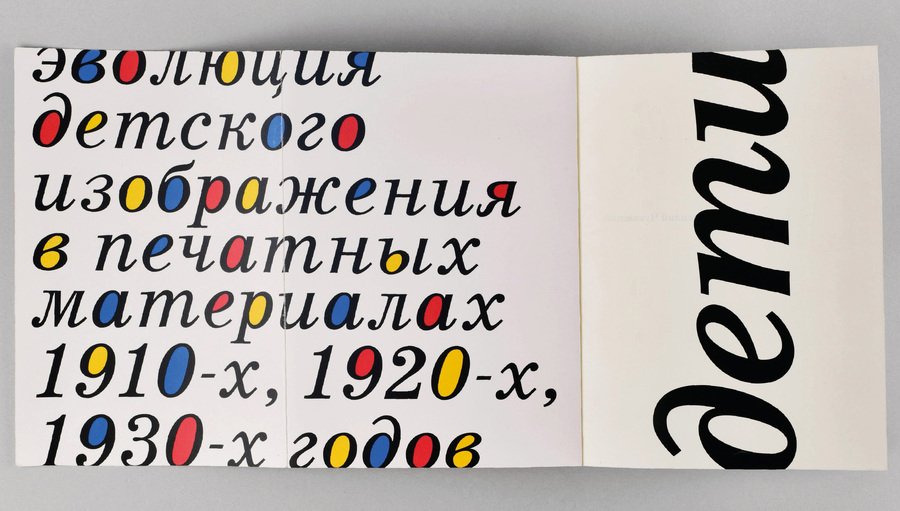 эволюция
детского
изображения
в печатных
материалах
1910-х, 1920-х,
1930-х годов
дети